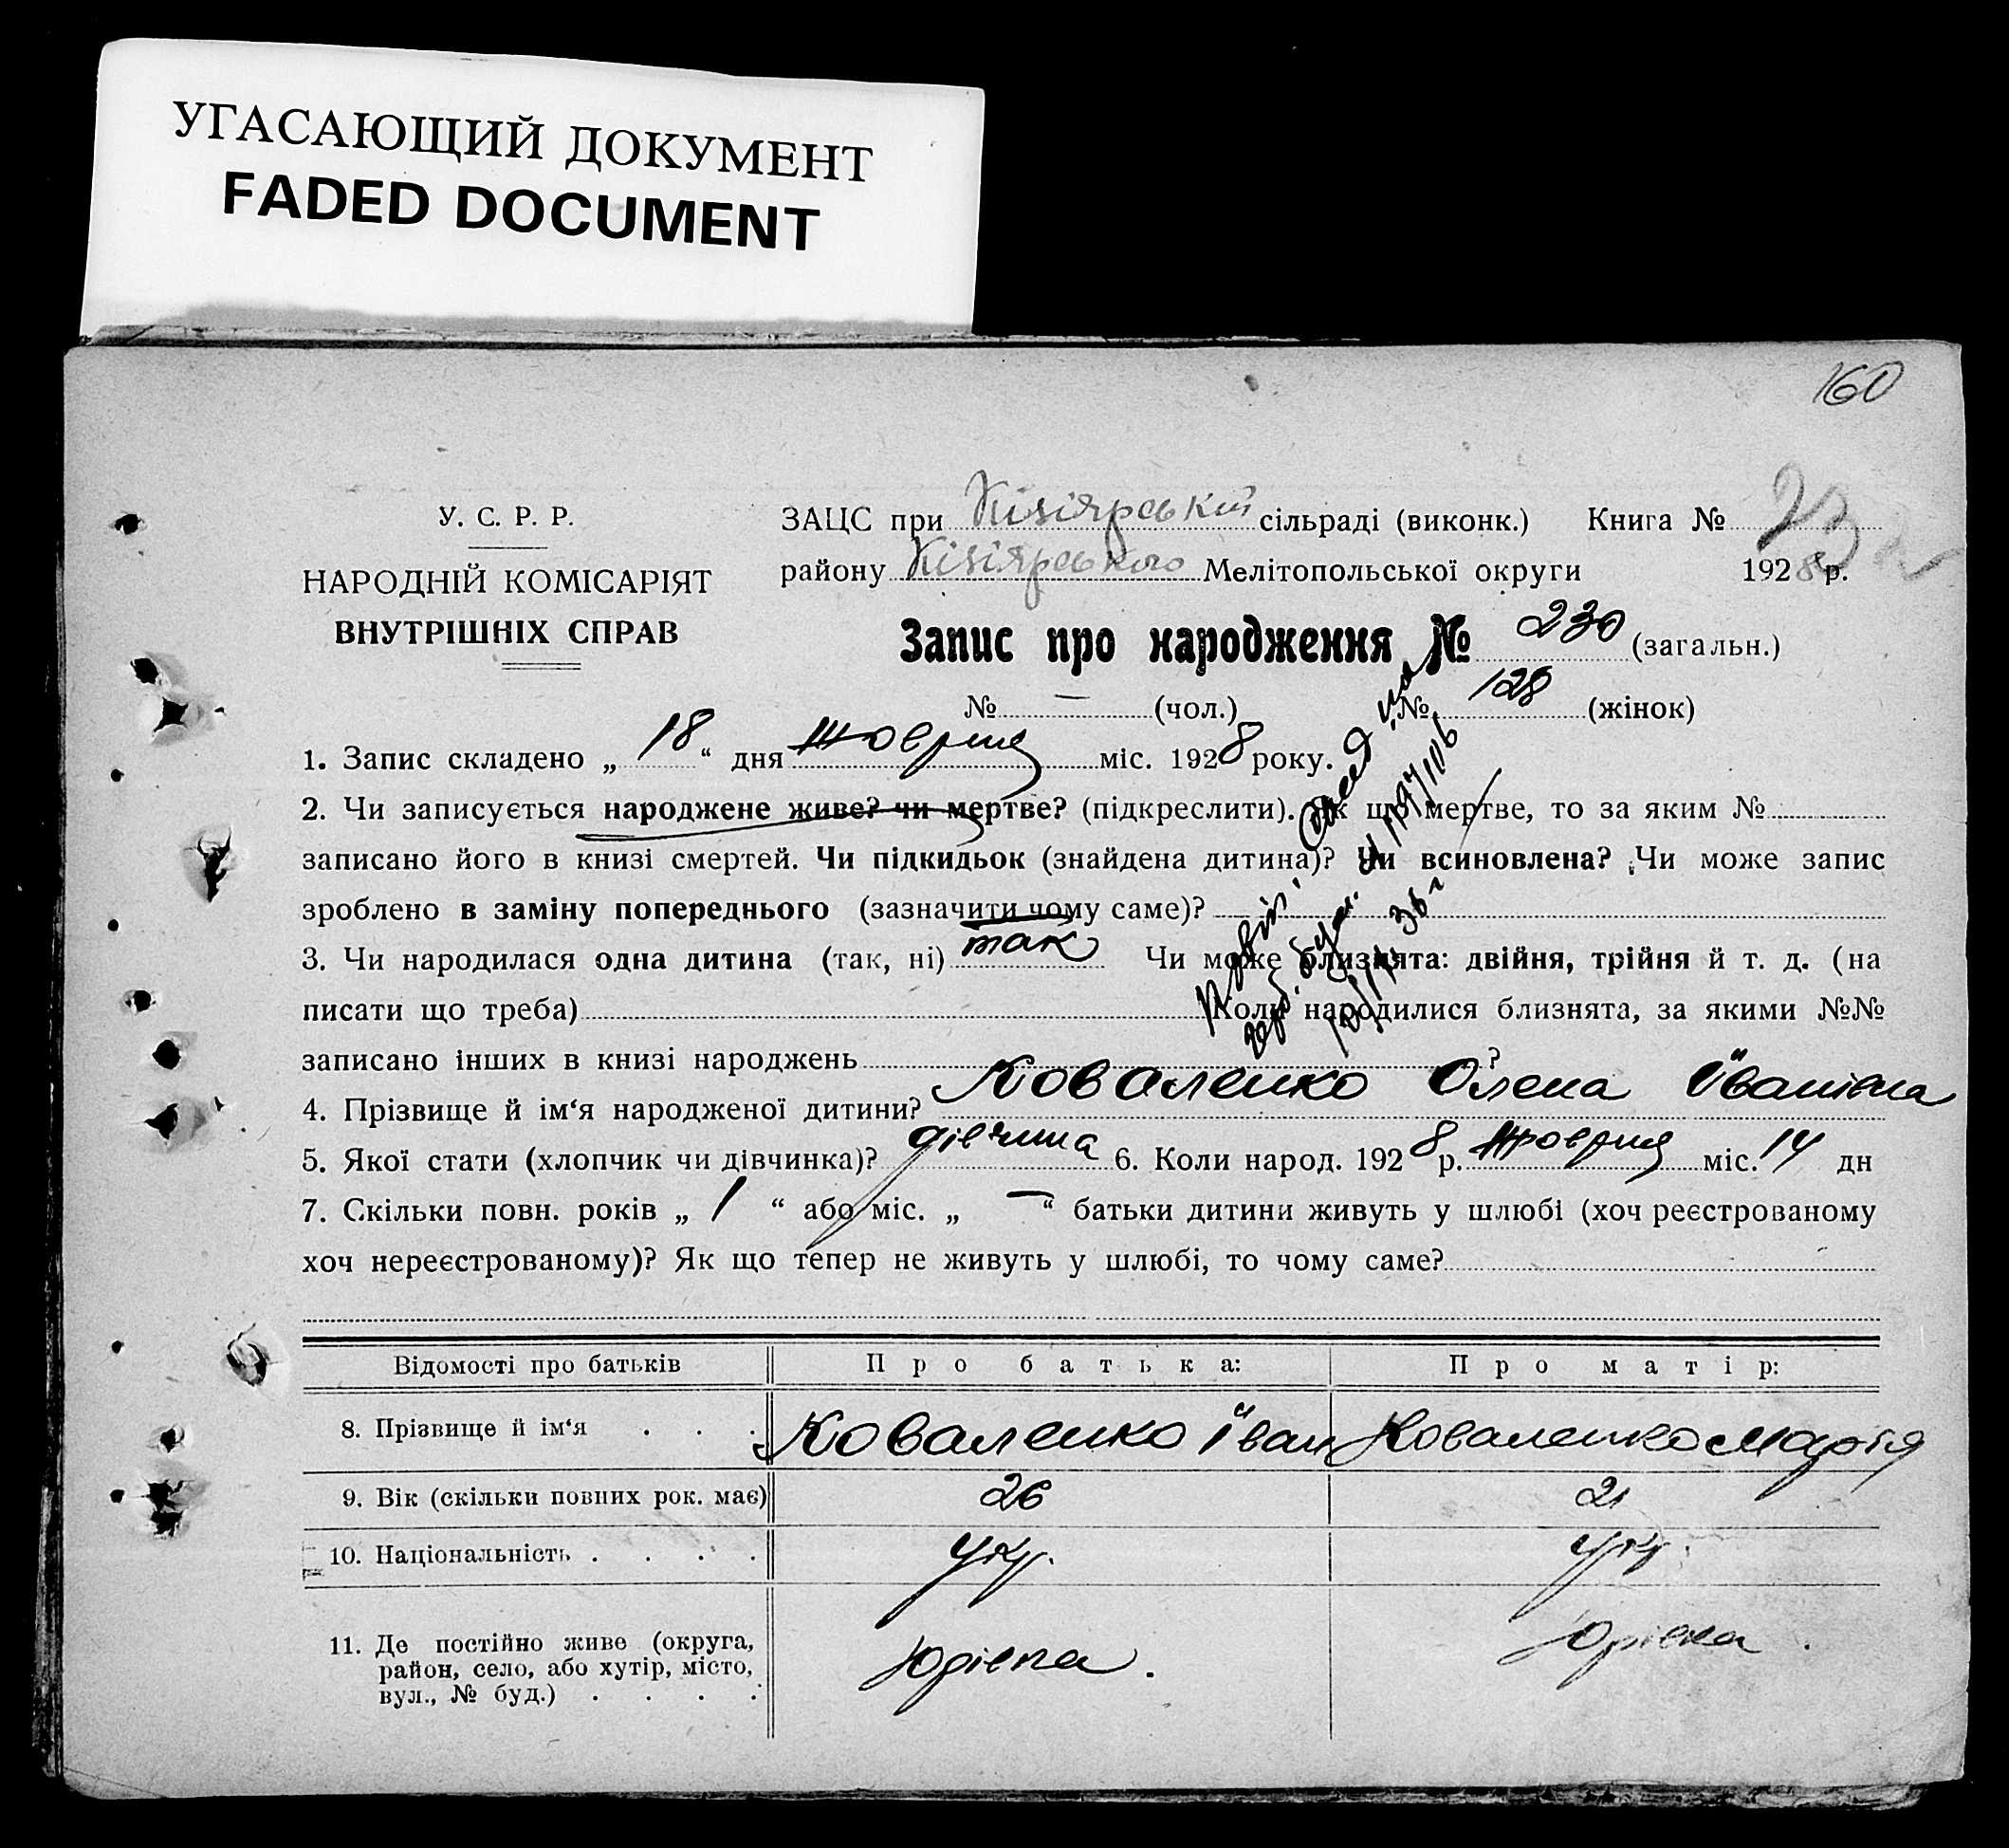 УГАСАЮЩИЙ ДОКУМЕНТ
FADED DOCUMENT
160
У. С. Р. Р.
НАРОДНІЙ КОМІСАРІЯТ
ВНУТРІШНІХ СПРАВ
ЗАЦС при Кізіярській сільраді (виконк.) Книга № 23
району Кізіярського Мелітопольської округи 1928 р.
Запис про народження № 230 (загальн.)
№ — (чол.) № 128 (жінок)
1. Запис складено „ 18 “ дня Жовтня міс. 1928 року.
2. Чи записується народжене живе? чи мертве? (підкреслити). Як що мертве, то за яким №
записано його в книзі смертей. Чи підкидьок (знайдена дитина)? Чи всиновлена? Чи може запис
зроблено в заміну попереднього (зазначити чому саме)?
3. Чи народилася одна дитина (так, ні) так Чи може близнята: двійня, трійня й т. д. (на
писати що треба) Коли народилися близнята, за якими №№
записано інших в книзі народжень ?
4. Прізвище й ім‘я народженої дитини? Коваленко Олена Іванівна
5. Якої стати (хлопчик чи дівчинка)? дівчина 6. Коли народ. 1928 р. Жовтня міс. 14 дн
7. Скільки повн. років „ 1 “ або міс. „ — “ батьки дитини живуть у шлюбі (хоч реєстрованому
хоч нереєстрованому)? Як що тепер не живуть у шлюбі, то чому саме?
Відомості про батьків Про батька: Про матір:
8. Прізвище й ім‘я . . . Коваленко Іван Коваленко Марія
9. Вік (скільки повних рок. має) 26 21
10. Національність . . . . Укр. Укр.
11. Де постійно живе (округа, Юрієвка . Юрієвка .
район, село, або хутір, місто,
вул., № буд.) . . . .